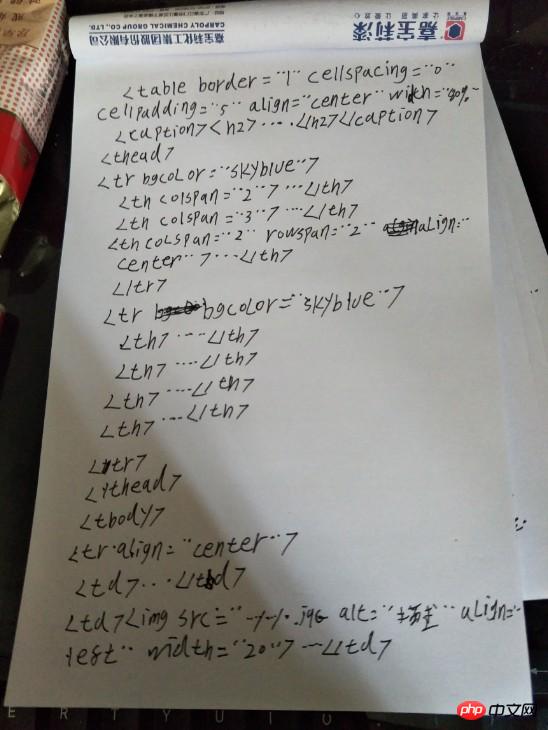 嘉宝莉漆
嘉宝莉化工集团股份有限公司
CARPOLY CHEMICAL GROUP CO., LTD.
<table border="1" cellspacing="0"
cellpadding="5" align="center" width="90%
<caption><h2>....</h2></caption>
<thead>
<tr bgcolor="skyblue">
<th colspan="2">...</th>
<th colspan="3">...</th>
<th colspan="2" rowspan="2" align="
center">...</th>
</tr>
<tr bgcolor="skyblue">
<th>....</th>
<th>....</th>
<th>....</th>
<th>....</th>
</tr>
</thead>
<tbody>
<tr align="center">
<td>...</td>
<td><img src= alt=" align="
width="20">...</td>
E R T Y U I O
php 中文网